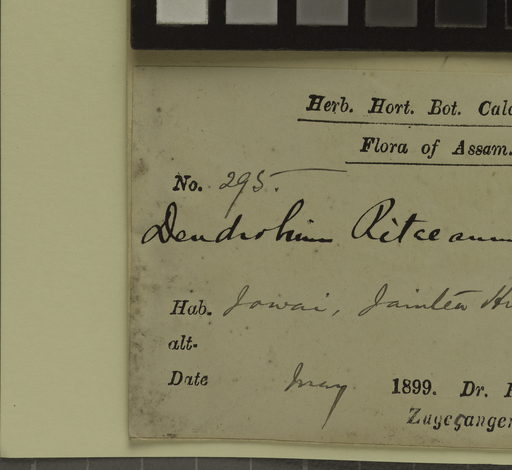 Herb. Hort. Bot. Calc
Flora of Assam.
No. 295.
Dendrobium Pitceanum
Hab. Jowai, Jaintea H
alt.
Date May 1899. Dr.
Zugegangen